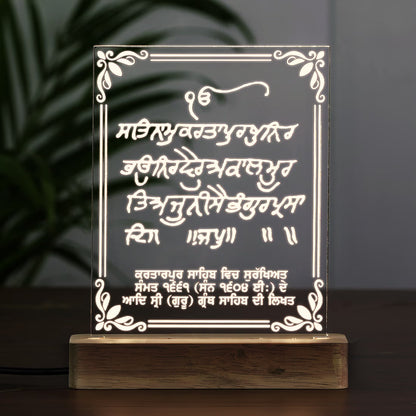 ੴ
ਸਤਿਨਾਮੁਕਰਤਾਪੁਰਖੁਨਿਰ
ਭਉਨਿਰਵੈਰੁਅਕਾਲਮੂਰ
ਤਿਅਜੂਨੀਸੈਭੰਗੁਰਪ੍ਰਸਾ
ਦਿ॥ ॥ਜਪੁ॥ ॥ ॥
ਕਰਤਾਰਪੁਰ ਸਾਹਿਬ ਵਿਚ ਸੁਰੱਖਿਅਤ
ਸੰਮਤ ੧੬੬੧ (ਸੰਨ ੧੬੦੪ ਈ:) ਦੇ
ਆਦਿ ਸ੍ਰੀ (ਗੁਰੂ) ਗ੍ਰੰਥ ਸਾਹਿਬ ਦੀ ਲਿਖਤ